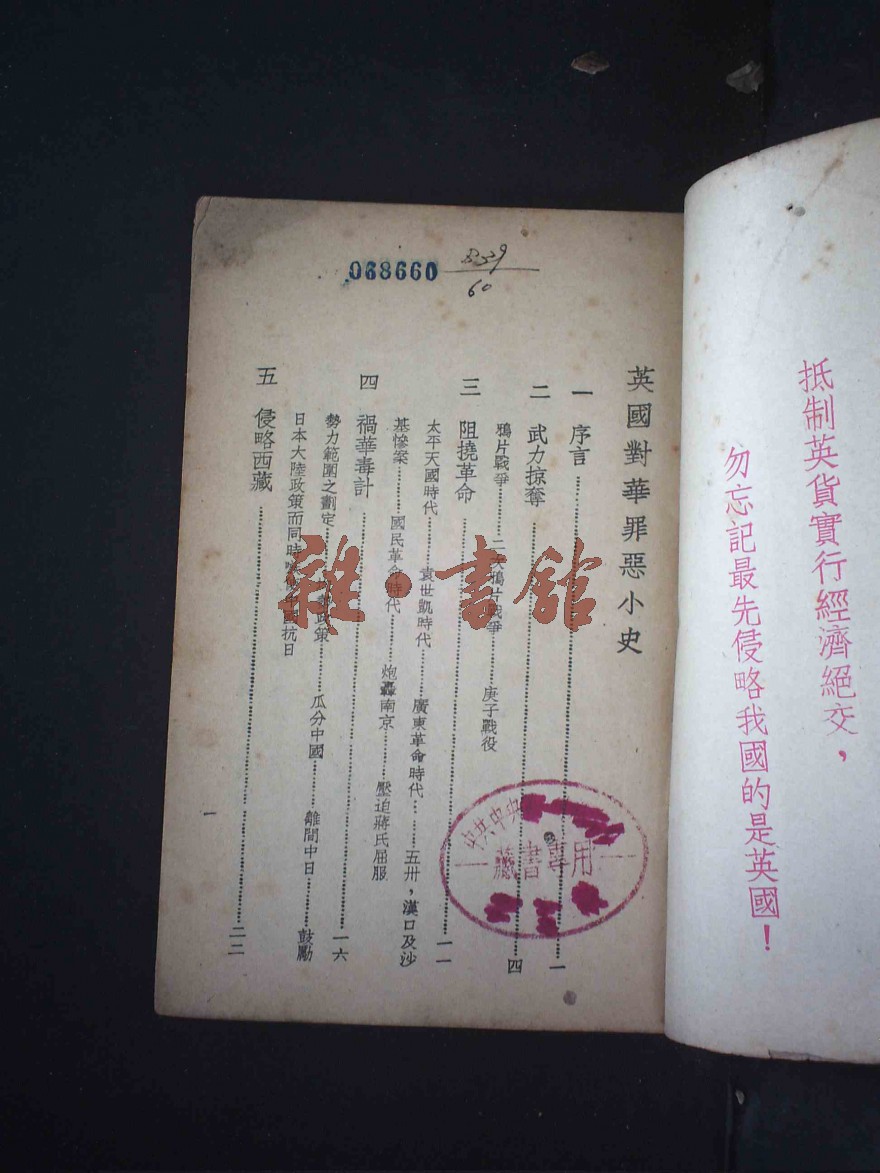 抵制英貨實行經濟絕交，
勿忘記最先侵略我國的是英國！
068660
839
60
英國對華罪惡小史
一 序言……一
二 武力掠奪……四
鴉片戰爭……二次鴉片戰爭……庚子戰役
三 阻撓革命……一一
太平天國時代……袁世凱時代……廣東革命時代……五卅，漢口及沙
基慘案……國民革命時代……炮轟南京……壓迫蔣氏屈服
四 禍華毒計……一六
勢力範圍之劃定……政策……瓜分中國……離間中日……鼓勵
日本大陸政策而同時中國抗日
五 侵略西藏……二二
一
中共中央
藏書專用
雜·書館